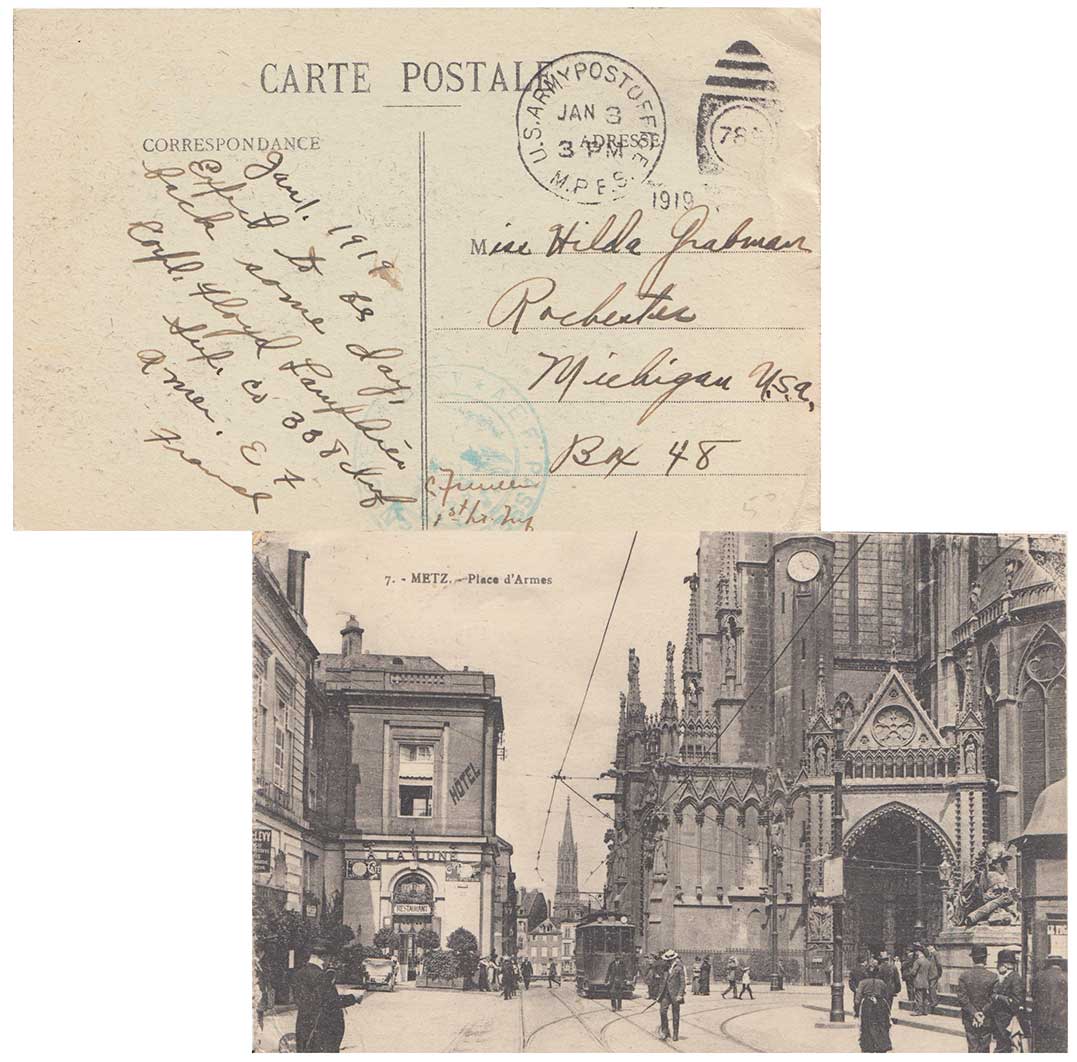 CARTE POSTALE
CORRESPONDANCE
ADRESSE
U.S. ARMY POST OFFICE
JAN 3
3 PM
M.P.E.S.
1919
Jan 1. 1919
Expect to be
back some day,
Corpl. Floyd
Sup. Co 338 Inf
Amer. E. F.
France
Miss Hilda Grabman
Rochester
Michigan U.S.A.
Box 48
A.E.F. PASS
1st Lt. Inf
7. - METZ. - Place d'Armes
HOTEL
A LA LUNE
RESTAURANT
LEVY